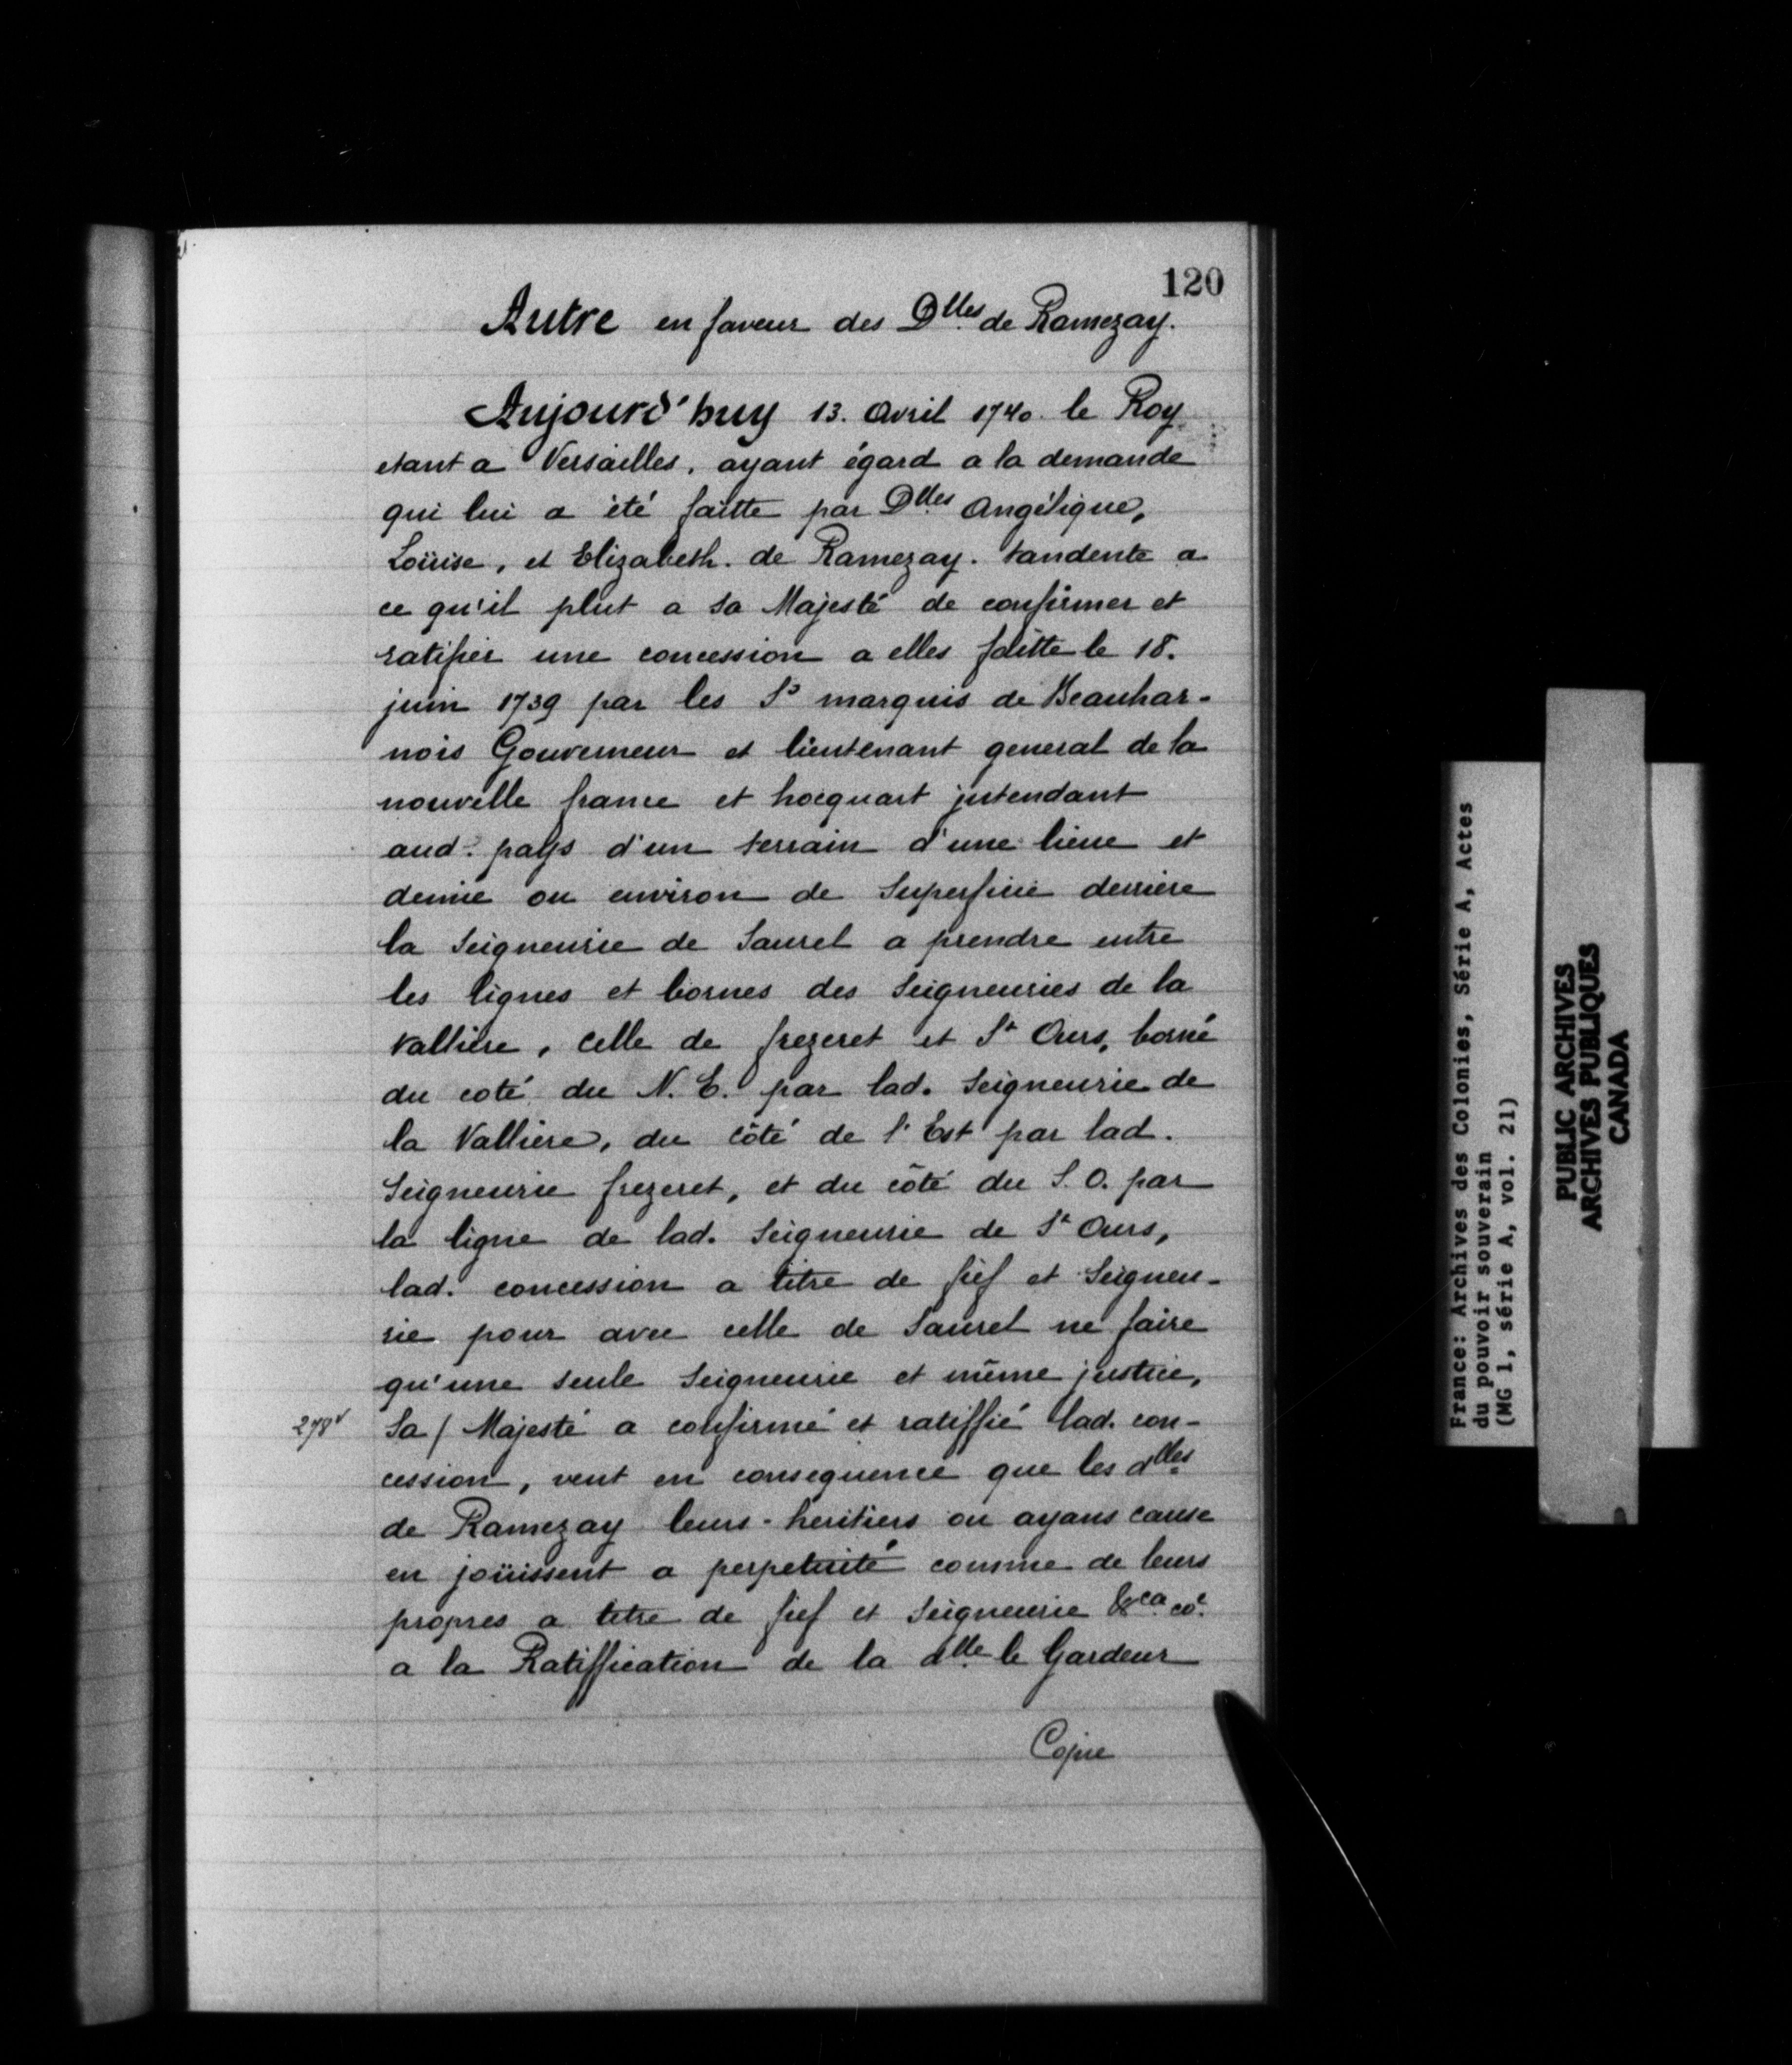 120
Autre en faveur des Dlles de Ramezay.
Aujourd'huy 13. Avril 1740. le Roy
etant a Versailles, ayant égard a la demande
qui lui a été faitte par Dlles Angélique,
Loüise, et Elizabeth. de Ramezay. tandente a
ce qu'il plut a Sa Majesté de confirmer et
ratifier une concession a elles faitte le 18.
juin 1739 par les Srs marquis de Beauhar-
nois Gouverneur et lieutenant general de la
nouvelle france et hocquart jntendant
aud. pays d'un terrain d'une lieue et
demie ou environ de Superficie derriere
la Seigneurie de Saurel a prendre entre
les lignes et bornes des Seigneuries de la
valliere, celle de frezeret et St Ours, borné
du coté du N. E. par lad. Seigneurie de
la Valliere, du côté de l'Est par lad.
Seigneurie frezeret, et du côté du S. O. par
la ligne de lad. Seigneurie de St Ours,
lad. concession a titre de fief et Seigneu-
rie pour avec celle de Saurel ne faire
qu'une seule Seigneurie et même justice,
278v Sa / Majesté a confirmé et ratiffié lad. con-
cession, veut en consequence que les dlles
de Ramezay leurs heritiers ou ayans cause
en joüissent a perpetuité comme de leurs
propres a titre de fief et Seigneurie &ca co.
a la Ratiffication de la dlle le Gardeur
Copie
France: Archives des Colonies, Série A, Actes
du pouvoir souverain
(MG 1, série A, vol. 21)
PUBLIC ARCHIVES
ARCHIVES PUBLIQUES
CANADA